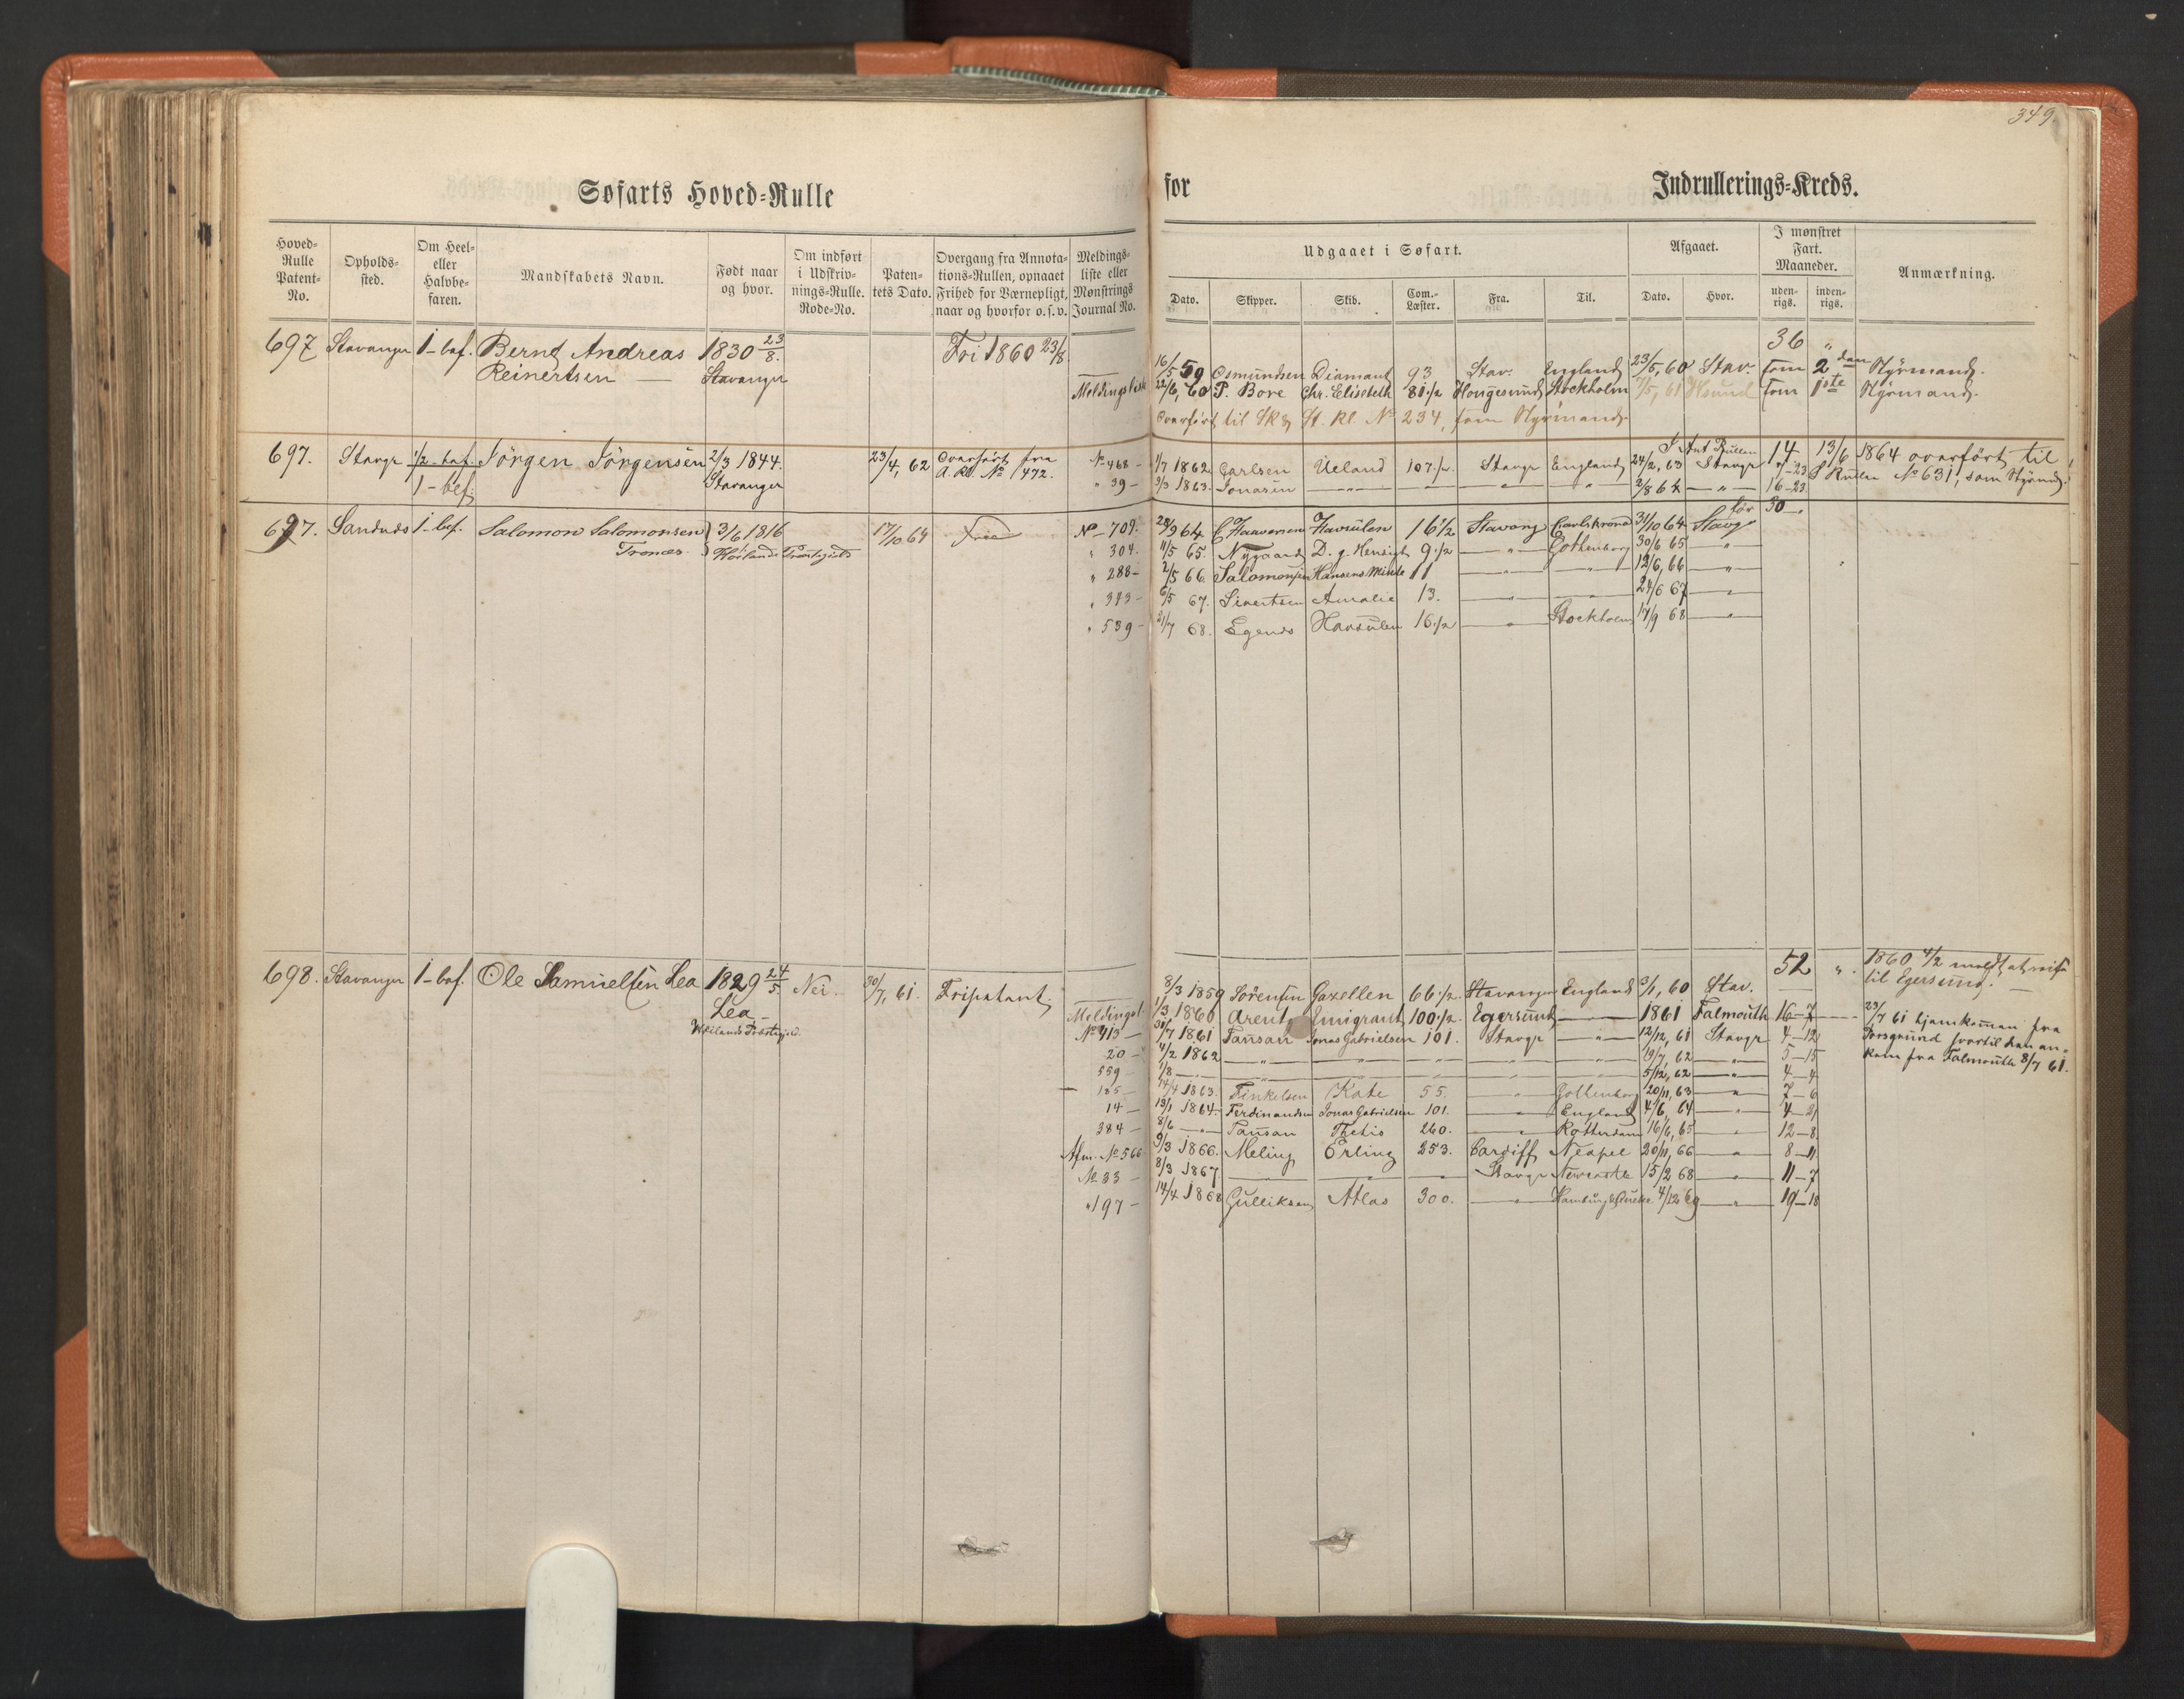 349.
Søfarts Hoved-Rulle for Indrullerings-Kreds.
Hoved-Rulle Patent-No. Opholds-sted. Om Heel- eller Halvbe-faren. Mandskabets Navn. Født naar og hvor. Om indført i Udskriv-nings-Rulle. Rode-No. Paten-tets Dato. Overgang fra Annota-tions-Rullen, opnaaet Frihed for Værnepligt, naar og hvorfor o.s.v. Meldings-liste eller Mønstrings Journal No.
Udgaaet i Søfart. Afgaaet. I mønstret Fart. Maaneder. Anmærkning.
Dato. Skipper. Skib. Com.-Læster. Fra. Til. Dato. Hvor. uden-rigs. inden-rigs.
697 Stavanger 1-bef. Bernt Andreas 1830 23/8. Fri 1860 23/8 36 "
Reinertsen — Stavanger 16/5 59 Osmundsen Diamant 93 Stav. England 23/5, 60 Stav. som 2den Styrmand.
Meldingsliste 22/6, 60 P. Bore Chr. Elisabeth 81 1/2 Hougesund Stockholm /5, 61 Hsund som 1ste Styrmand.
Overført til Skr. St. Rl. No 234, som Styrmand.
697. Stavgr 1/2-bef. Jörgen Jörgensen 2/3 1844. 23/4, 62 Overført fra No 468 - 1/7 1862 Carlsen Ueland 107 1/2 Stavgr England 24/2, 63 Stavgr 14 13/6 1864 overført til
I Ant Rullen
1-bef. Stavanger A. Rl. No 1472. " 39 - 3/3 1863. Jonasen — " — " — " — 2/8 64 — " — 16-23 S Rullen No 631, som Styrmd.
697. Sandnæs 1-bef. Salomon Salomonsen 3/6 1816 17/10 64 Frie No - 709. 28/9 64. Havsulen 16 1/2 Stavang Carlskrona 31/10 64 Stavgr før 30.
Tronæs. Høilands Præstegield " 304. 11/5 65. Nygaard D. g. Hensigt 9 1/2 — " — Gothenborg 30/6 65 — " —
" 288 - 2/5 66 Salomonsen Hansens Minde 11 — " — 12/6, 66 — " —
" 393 - 6/5 67. Sivertsen Amalie 13. — " — 24/6 67 — " —
" 539 - 21/7 68. Egenes Havsulen 16 1/2 — " — Stockholm 17/9 68 — " —
698. Stavanger 1-bef. Ole Samuelsen Lea 1829 24/5. Nei. 30/7, 61. Fripatent. 8/3 1859 Sörensen Gazellen 66 1/2. Stavanger England 3/1, 60 Stav. 52 ". 1860 4/2 meldt at reise
til Egersund.
Lea — Meldingsl. 1/3 1860 Arent Emigrant 100 1/2. Egersund — 1861 Falmouth 16-7 23/7 61 hjemkommen fra
Høilands Præstegjd. No 413 - 30/7 1861 Tansan Jonas Gabrielsen 101. Stavgr — " — 12/12, 61 Stavgr 4-12 Porsgrund hvortil han an-
20 - 4/2 1862 — " — 19/7, 62 — " — 5-15 kom fra Falmouth 8/7 61.
559 - 1/8 — " — 5/12, 62 — " — 4-4
185 - 14/4 1863. Finkelsen Kate 55. — " — Gottenborg 20/11, 63 — " — 7-6
14 - 13/1 1864. Ferdinandsen Jonas Gabrielsen 101. — " — England 4/6, 64 — " — 4-21
384 - 8/6 — " — Tansan Thetis 260. — " — Rotterdam 16/6, 65 — " — 12-8
Afm. No 566 9/3 1866. Meling Erling 253. Cardiff Neapel 20/11, 66 — " — 8-11
No 33 - 8/3 1867 — " — Stavgr Newcastle 15/2 68 — " — 11-7
" 197 - 14/4 1868 Gulliksen Atlas 300. — " — 4/12 69 — " — 19-18